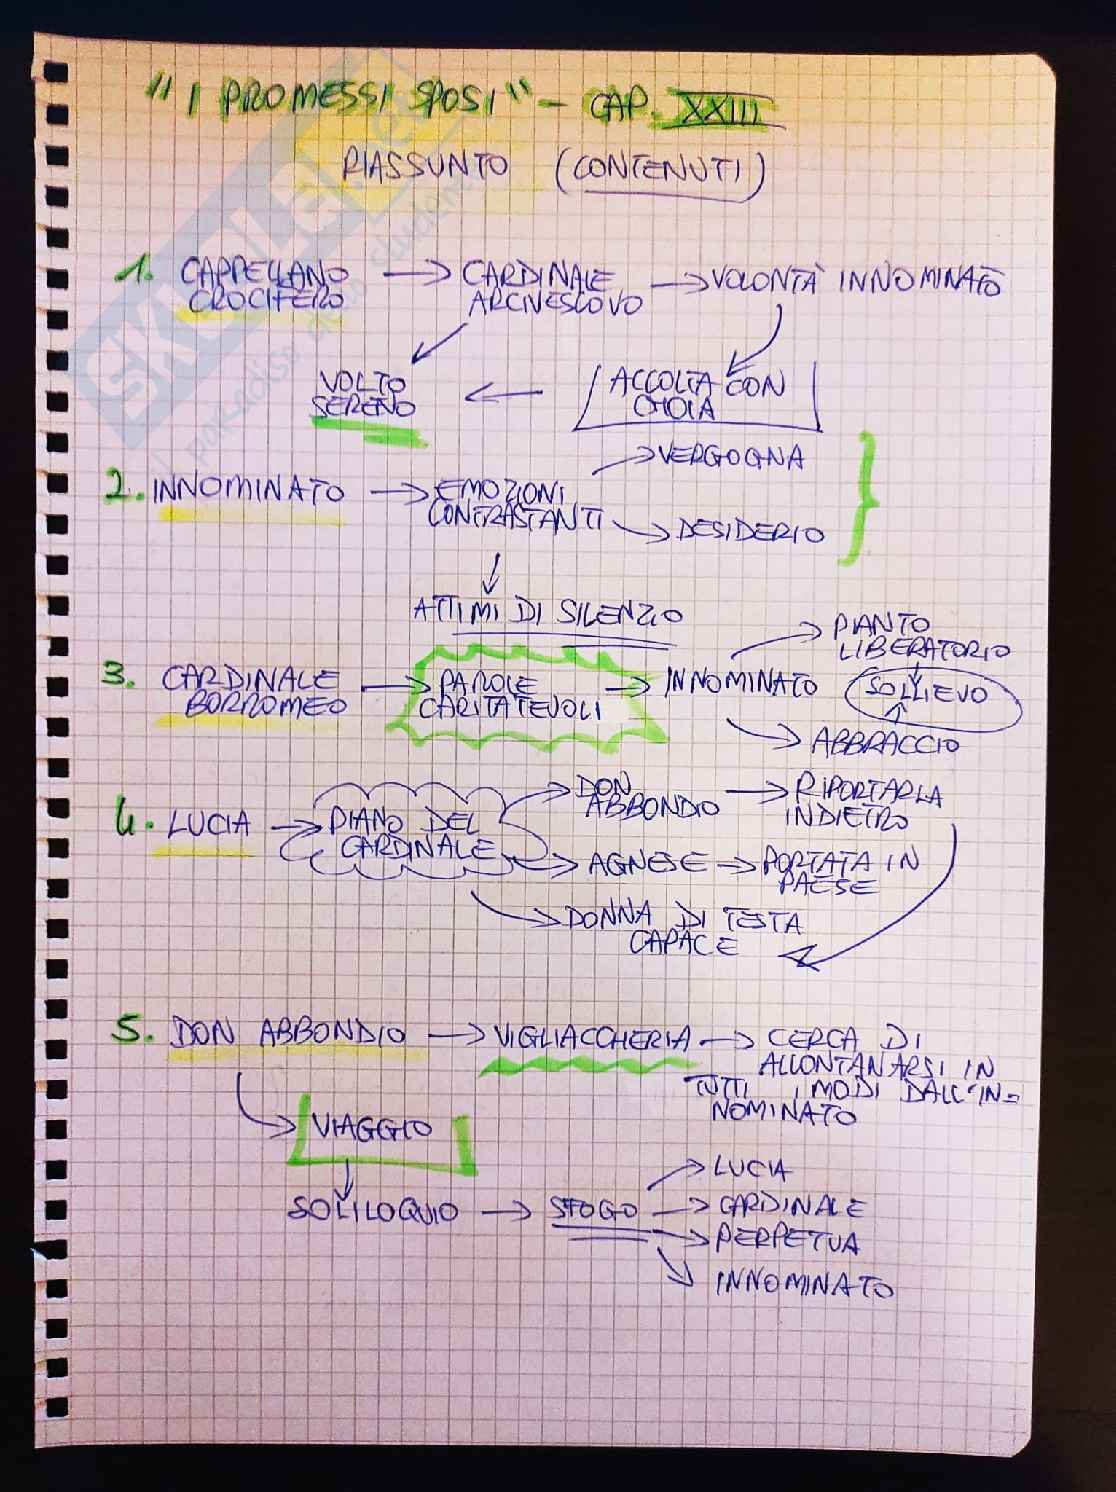 "I PROMESSI SPOSI" - CAP. XXIII
RIASSUNTO (CONTENUTI)
1. CAPPELLANO → CARDINALE → VOLONTÀ INNOMINATO
CROCIFERO ARCIVESCOVO
VOLTO ← ACCOLTA CON
SERENO GIOIA
→ VERGOGNA
2. INNOMINATO → EMOZIONI
CONTRASTANTI → DESIDERIO
ATTIMI DI SILENZIO
→ PIANTO
LIBERATORIO
3. CARDINALE → PAROLE → INNOMINATO SOLLIEVO
BORROMEO CARITATEVOLI
→ ABBRACCIO
→ DON → RIPORTARLA
ABBONDIO INDIETRO
4. LUCIA → PIANO DEL
CARDINALE → AGNESE → PORTATA IN
PAESE
→ DONNA DI TESTA
CAPACE
5. DON ABBONDIO → VIGLIACCHERIA → CERCA DI
ALLONTANARSI IN
TUTTI I MODI DALL'IN=
NOMINATO
→ VIAGGIO
→ LUCIA
SOLILOQUIO → SFOGO → CARDINALE
→ PERPETUA
→ INNOMINATO
SKUOLA